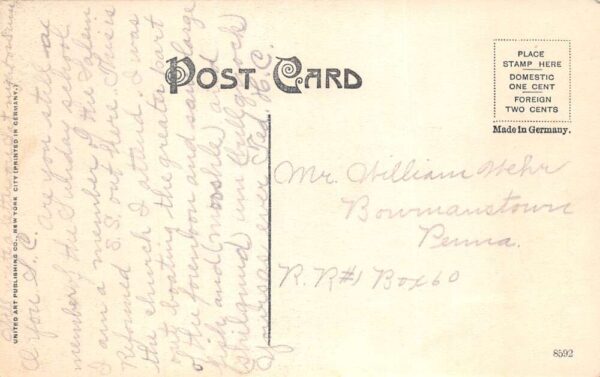 POST CARD
PLACE
STAMP HERE
DOMESTIC
ONE CENT
FOREIGN
TWO CENTS
Made in Germany.
Mr. William Wehr
Bowmanstown
Penna.
R. R#1 Box 60
8592
UNITED ART PUBLISHING CO., NEW YORK CITY (PRINTED IN GERMANY.)
you S. C. Are you still a
member of the Sunday school
I am a member of the Salem
Reformed S.S. out here. This is
the church I attend. I was
out boating the greater part
of the forenoon and saw large
and
Yours as ever Ted H. C.